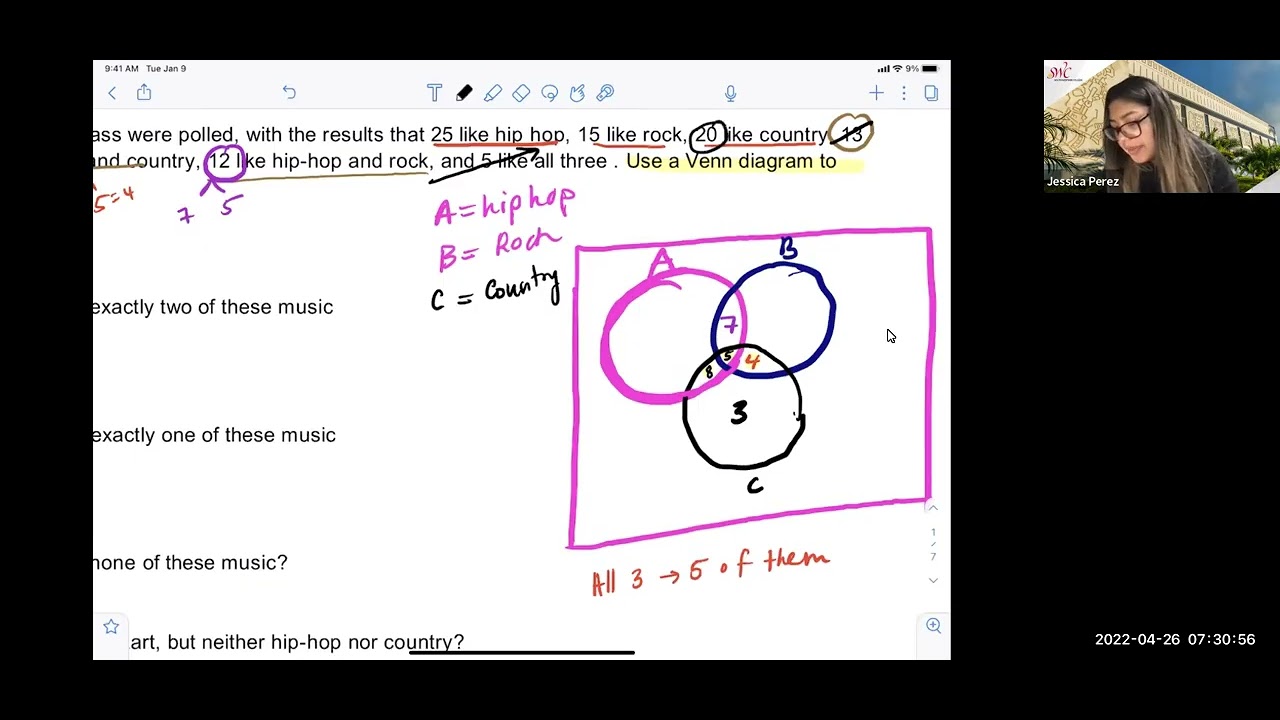 9:41 AM Tue Jan 9
9%
ass were polled, with the results that 25 like hip hop, 15 like rock, 20 like country, 13
and country, 12 like hip-hop and rock, and 5 like all three . Use a Venn diagram to
5=4
7 5
A=hiphop
B= Rock
C = Country
exactly two of these music
exactly one of these music
none of these music?
art, but neither hip-hop nor country?
A
B
7
5
4
8
3
C
All 3 → 5 of them
1
7
SWC
Jessica Perez
2022-04-26 07:30:56